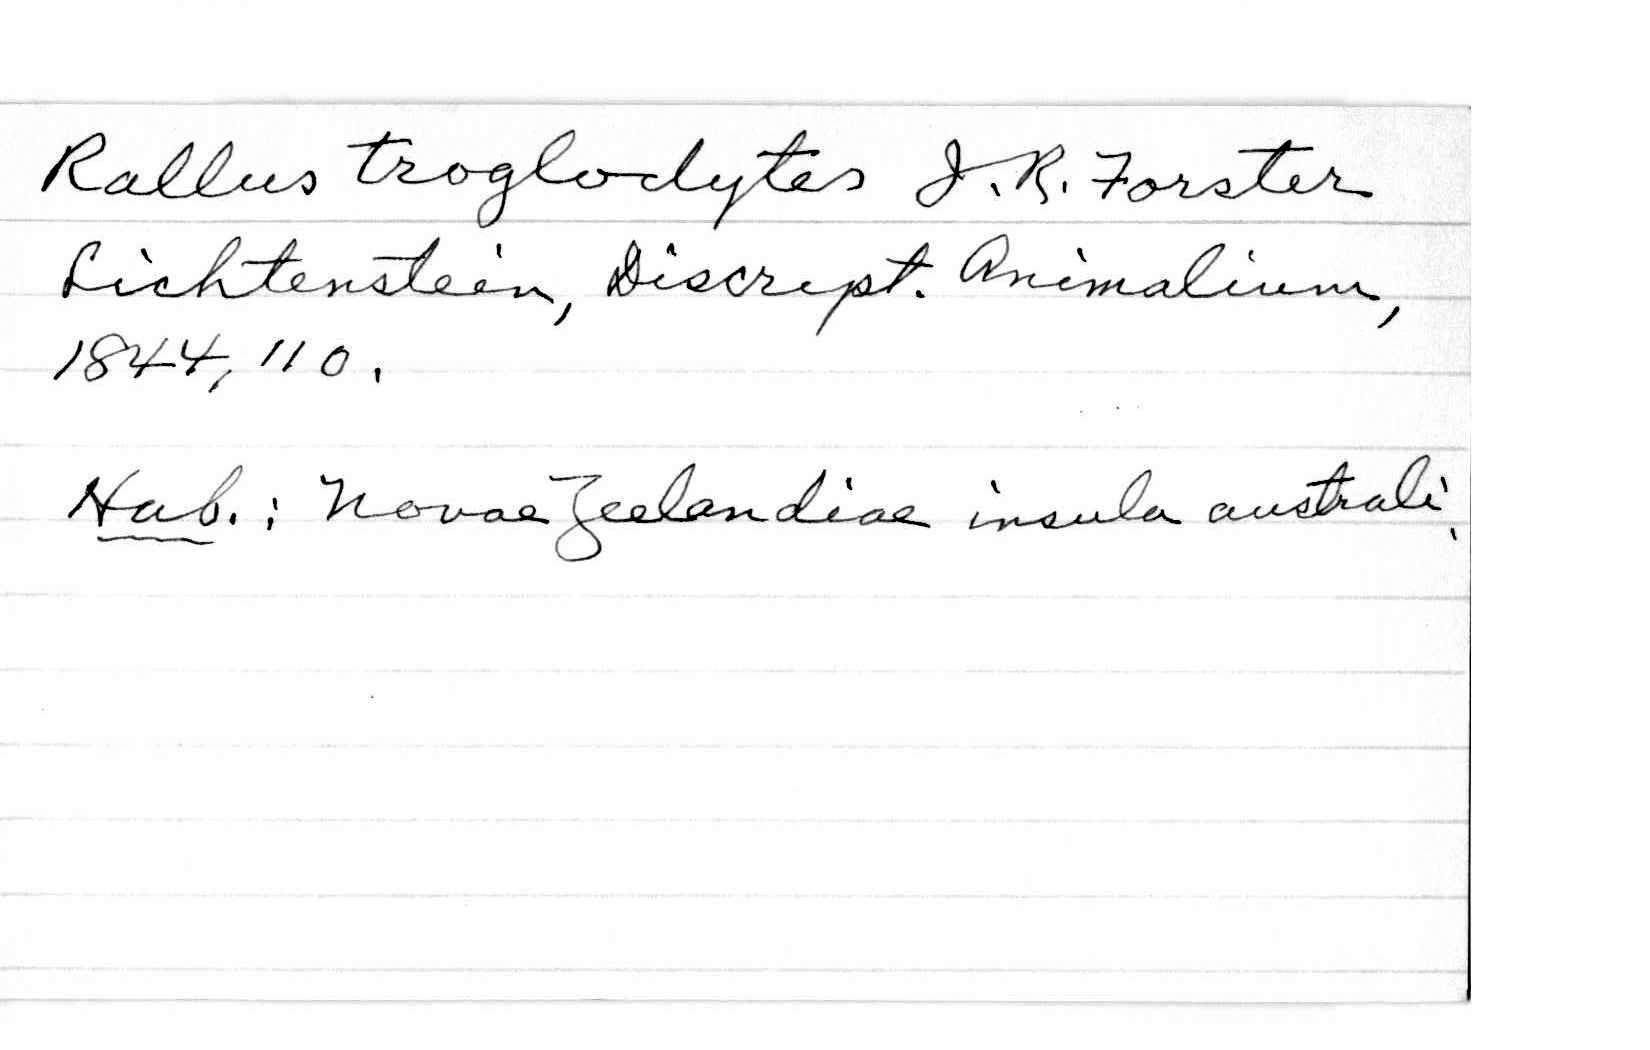 Rallus troglodytes J. R. Forster
Lichtenstein, Discript. Animalium,
1844, 110.
Hab.: Novae Zeelandiae insula australi.